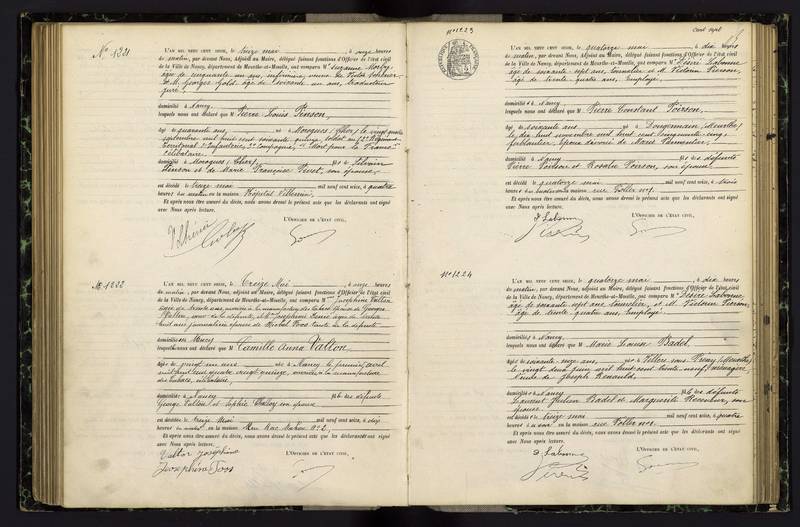 No 1221
L'AN MIL NEUF CENT SEIZE, le treize mai, à onze heures
du matin, par devant Nous, Adjoint au Maire, délégué faisant fonctions d'Officier de l'état civil
de la Ville de Nancy, département de Meurthe-et-Moselle, ont comparu Me Suzanne
âgée de cinquante un ans, infirmière, veuve
et M. Georges Gold, âgé de soixante un ans, traducteur
juré
domicilié à Nancy
lesquels nous ont déclaré que M Pierre Louis Pinson,
âgé de quarante ans, né à Morogues (Cher) le vingt quatre
septembre mil huit cent soixante quinze, soldat au Régiment
Territorial d'Infanterie, Compagnie, "Mort pour la France"
célibataire
domicilié à Morogues (Cher) fils de Silvain
Pinson et de Marie Françoise, son épouse
est décédé le treize mai mil neuf cent seize, à quatre
heures du matin en la maison Hôpital Villemin,
Et après nous être assuré du décès, nous avons dressé le présent acte que les déclarants ont signé
avec Nous après lecture.
L'OFFICIER DE L'ÉTAT CIVIL,
No 1222
L'AN MIL NEUF CENT SEIZE, le Treize Mai, à onze heures
du matin, par devant Nous, adjoint au Maire, délégué faisant fonctions d'Officier de l'état civil
de la Ville de Nancy, département de Meurthe-et-Moselle, ont comparu Me Joséphine Valton
âgée de trente ans, ouvrière à la manufacture des tabacs, épouse de Georges
Valton, sœur de la défunte, et Me Joséphine âgée de trente
huit ans journalière épouse de Michel Voos tante de la défunte
domiciliées à Nancy
lesquelles nous ont déclaré que M Camille Anna Valton,
âgée de vingt un ans, née à Nancy le premier avril
mil huit cent quatre vingt quinze, ouvrière à la manufacture
des tabacs, célibataire
domiciliée à Nancy fille de
George Valton et Sophie son épouse
est décédée le treize Mai mil neuf cent seize, à dix
heures du matin en la maison Rue Mac Mahon No 2,
Et après nous être assuré du décès, nous avons dressé le présent acte que les déclarants ont signé
avec Nous après lecture.
L'OFFICIER DE L'ÉTAT CIVIL,
Valton Joséphine
Joséphine Voos
No 1223
Cent sept
L'AN MIL NEUF CENT SEIZE, le quatorze mai, à dix heures
du matin, par devant Nous, Adjoint au Maire, délégué faisant fonctions d'Officier de l'état civil
de la Ville de Nancy, département de Meurthe-et-Moselle, ont comparu M Désiré Labonne
âgé de soixante sept ans, tourselier et M. Victorin
âgé de trente quatre ans, employé
domiciliés à Nancy
lesquels nous ont déclaré que M Pierre Constant Poirson,
âgé de soixante ans, né à Dongermain (Meurthe)
le dix huit novembre mil huit cent cinquante cinq
ferblantier, époux divorcé de Marie
domicilié à Nancy fils de défunts
Pierre Poirson et Rosalie Poirson, son épouse
est décédé le quatorze mai mil neuf cent seize, à trois
heures du matin en la maison rue
Et après nous être assuré du décès, nous avons dressé le présent acte que les déclarants ont signé
avec Nous après lecture.
L'OFFICIER DE L'ÉTAT CIVIL,
D Labonne
No 1224
L'AN MIL NEUF CENT SEIZE, le quatorze mai, à dix heures
du matin, par devant Nous, adjoint au Maire, délégué faisant fonctions d'Officier de l'état civil
de la Ville de Nancy, département de Meurthe-et-Moselle, ont comparu M Désiré Labonne,
âgé de soixante sept ans, et M. Victorin
âgé de trente quatre ans, employé
domiciliés à Nancy
lesquels nous ont déclaré que M Marie Louise Badel,
âgée de soixante seize ans, née à Villers sous Prény (Meurthe)
le vingt deux juin mil huit cent trente neuf, ménagère
Veuve de Joseph
domiciliée à Nancy fille de défunts
Laurent Badel et Marguerite, son
épouse
est décédée le treize mai mil neuf cent seize, à quatre
heures du soir en la maison rue
Et après nous être assuré du décès, nous avons dressé le présent acte que les déclarants ont signé
avec Nous après lecture.
L'OFFICIER DE L'ÉTAT CIVIL,
D Labonne